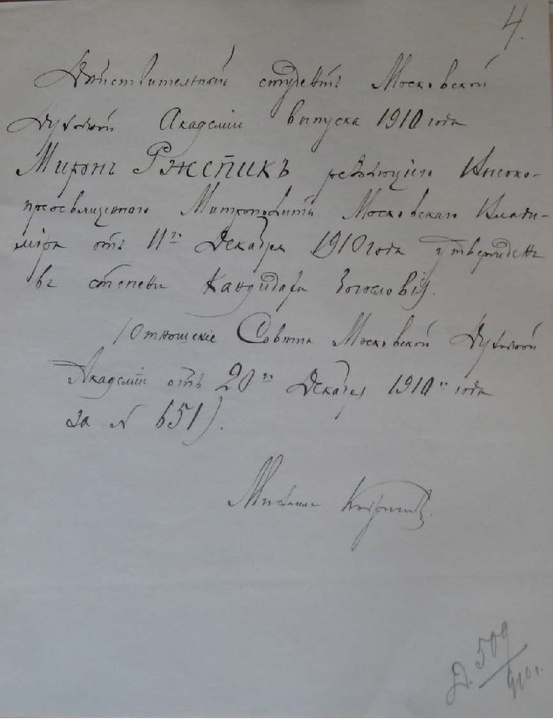 4.
Дѣйствительный студентъ Московской
Духовной Академіи выпуска 1910 года
Миронъ Ржепикъ резолюціею Высоко-
преосвященнаго Митрополита Московскаго Влади-
міра отъ 11го Декабря 1910 года утвержденъ
въ степени Кандидата Богословія.
(Отношеніе Совѣта Московской Духовной
Академіи отъ 20го Декабря 1910го года
за N 651).
Д. 509/910 г.